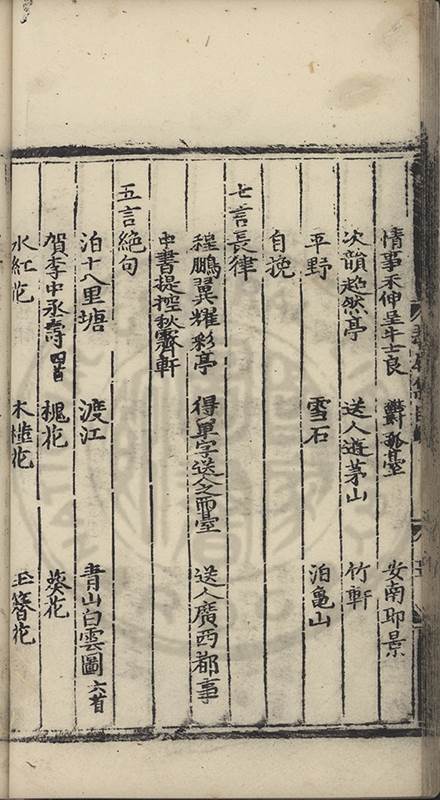 情事未伸呈牛士良 鬱孤臺 安南即景
次韻超然亭 送人遊茅山 竹軒
平野 雪石 泊龜山
自挽
七言長律
程鵬翼耀彩亭 得單字送人之西臺 送人廣西都事
中書提控秋霽軒
五言絕句
泊十八里塘 渡江 青山白雲圖六首
賀李中丞壽四首 槐花 葵花
水紅花 木槿花 玉簪花